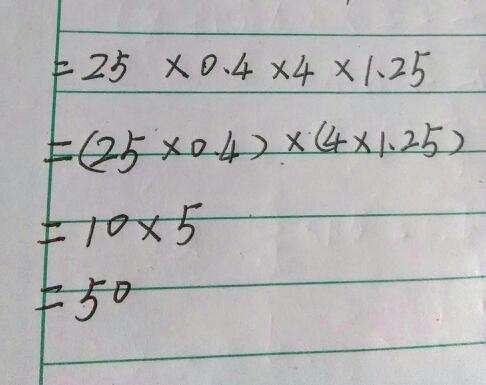 =25 ×0.4×4×1.25
=(25×0.4)×(4×1.25)
=10×5
=50